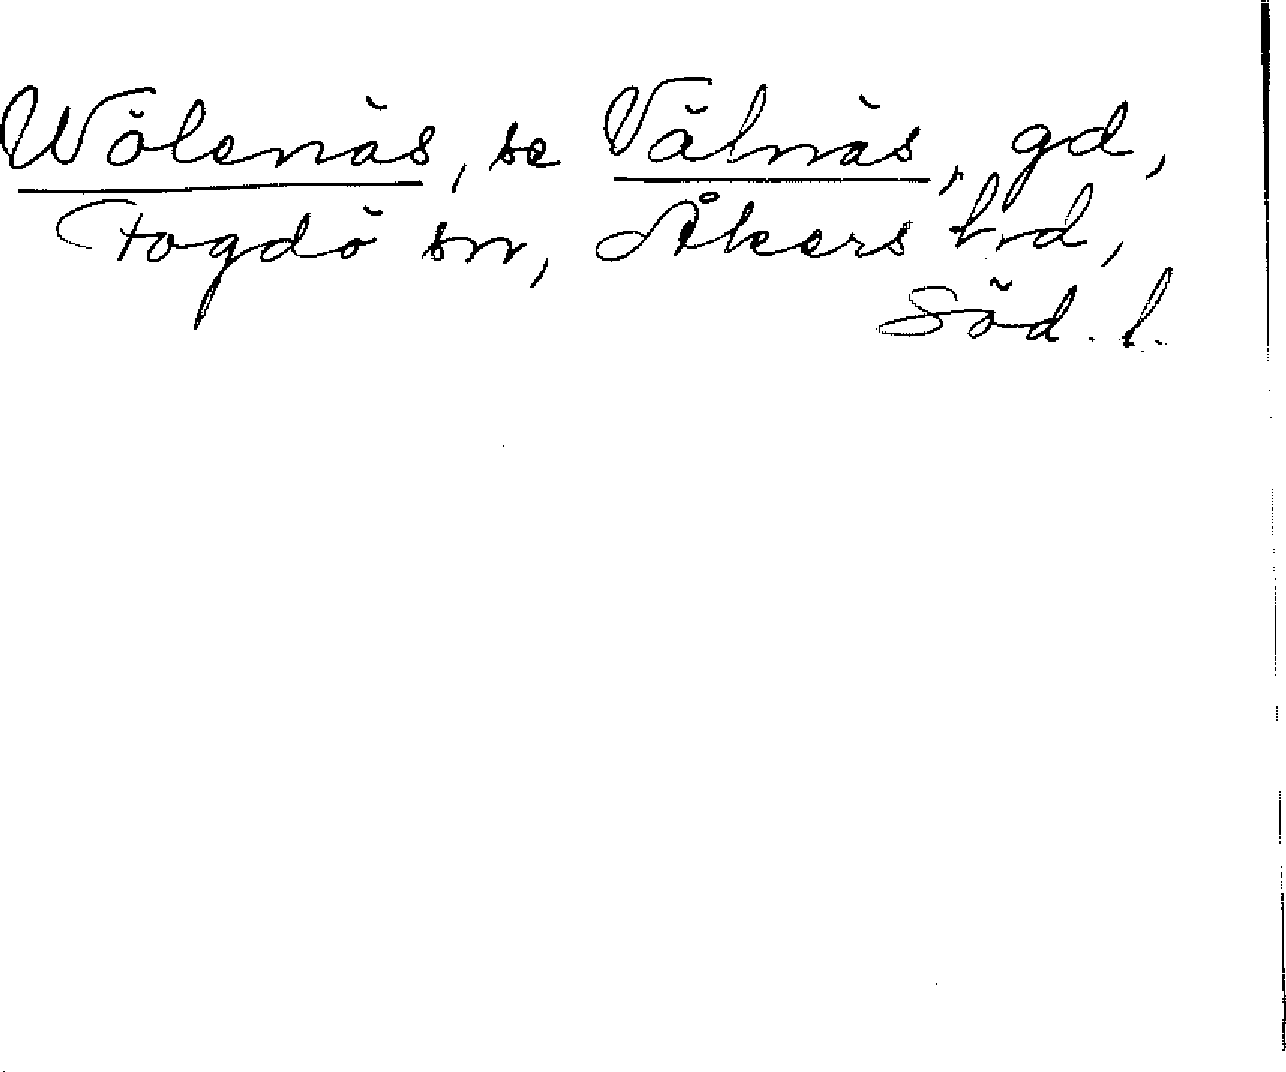 Wölenäs, se Välnäs, gd,
Fogdö sn, Åkers hd,
Söd. l.